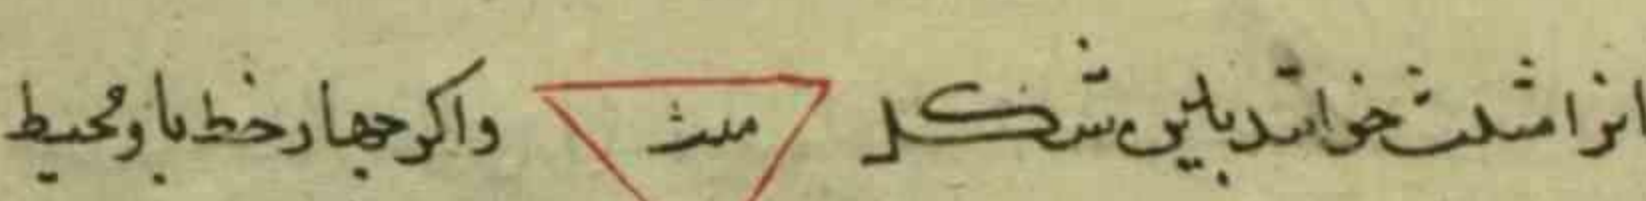 انرا مثلث خوانند بدین شکل مثلث واکر جهار خط باو محیط